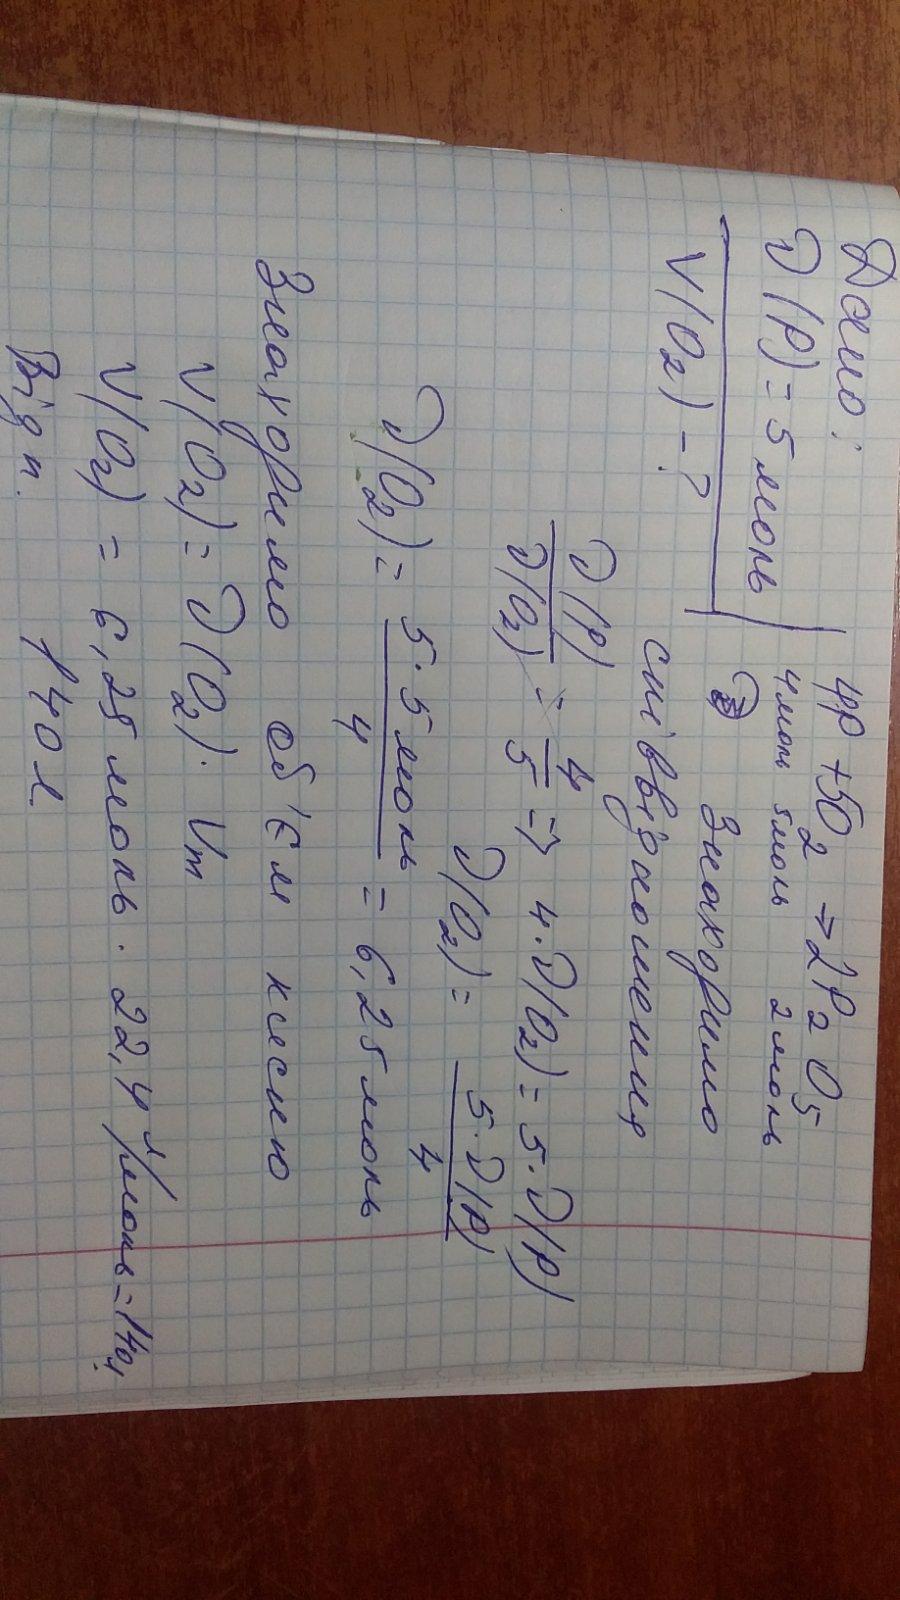 Дано:
ν(P) = 5 моль
V(O₂) - ?
4P + 5O₂ → 2P₂O₅
4 моль 5 моль 2 моль
Знаходимо
співвідношення
ν(P)/ν(O₂) = 4/5 => 4·ν(O₂) = 5·ν(P)
ν(O₂) = 5·ν(P)/4
ν(O₂) = 5·5 моль/4 = 6,25 моль
Знаходимо об'єм кисню
V(O₂) = ν(O₂)·Vm
V(O₂) = 6,25 моль · 22,4 л/моль = 140л
Відп. 140 л